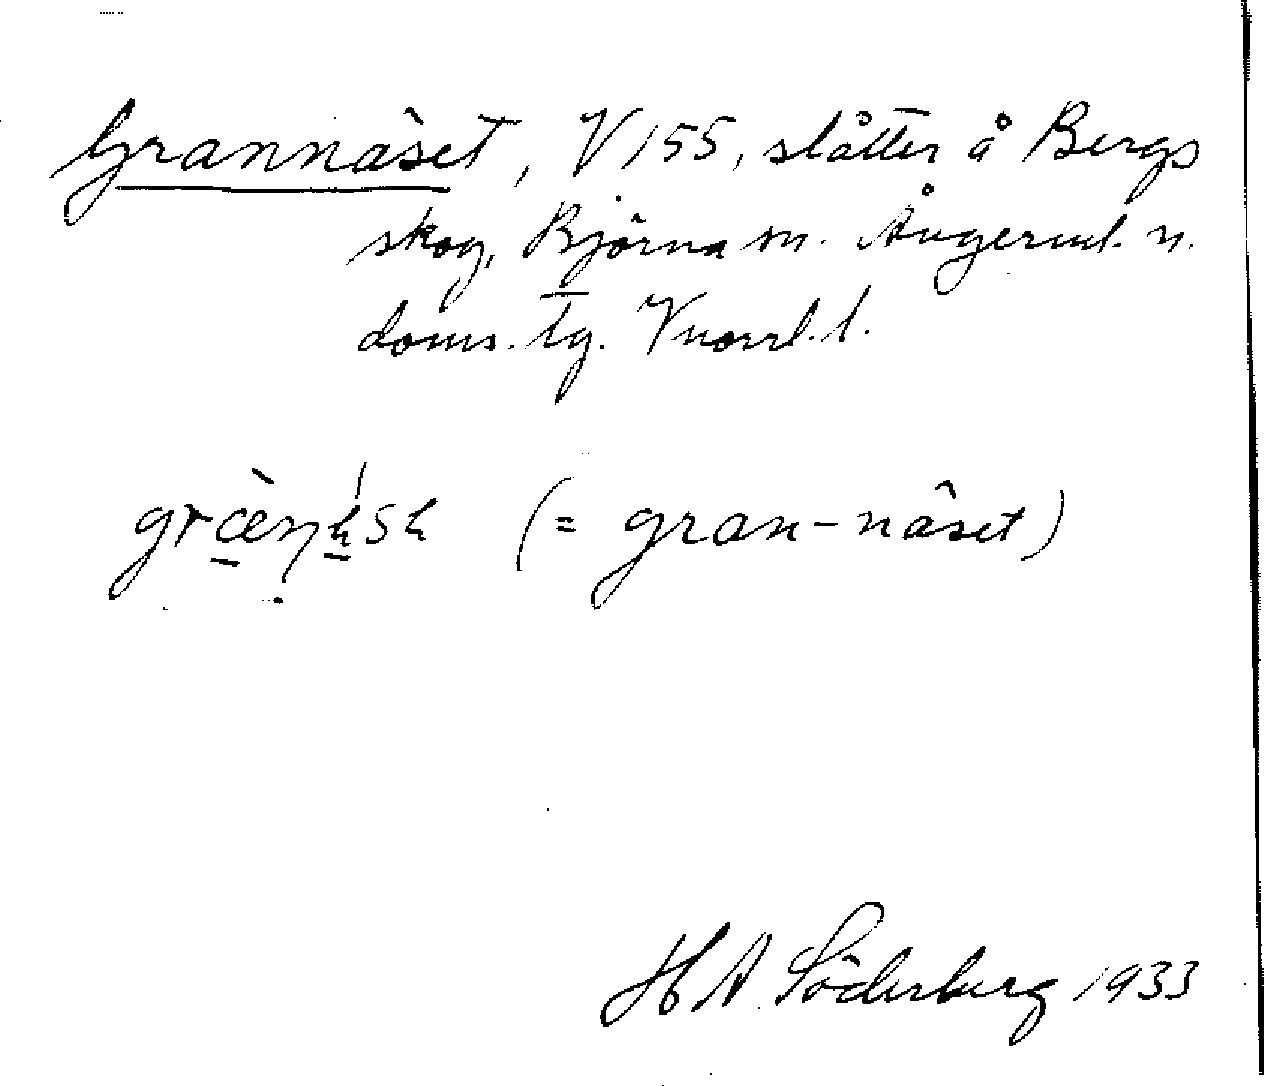 Grannäset, V 155, slåtter å Bergs
skog, Björna sn. Ångerml. n.
doms. tg. Vnorrl. l.
(= gran-näset)
H A Söderberg 1933